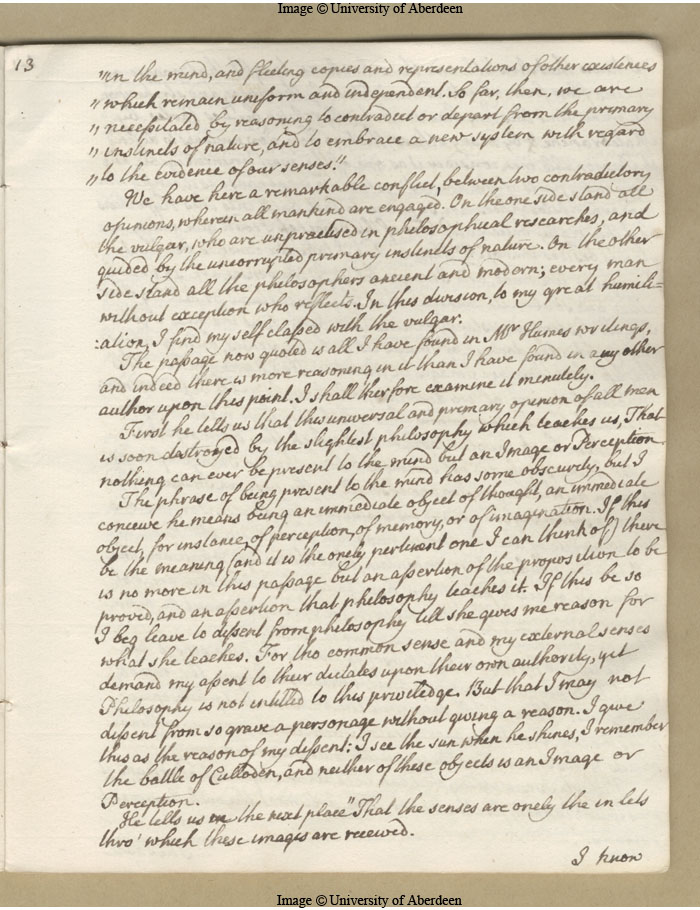 Image © University of Aberdeen
13
"in the mind, and fleeting copies and representations of other existences
"which remain uniform and independent. So far, then, we are
"necessitated by reasoning to contradict or depart from the primary
"instincts of nature, and to embrace a new system with regard
"to the evidence of our senses."
We have here a remarkable conflict, between two contradictory
opinions, wherein all mankind are engaged. On the one side stand all
the vulgar, who are unpractised in philosophical researches, and
guided by the uncorrupted primary instincts of nature. On the other
side stand all the philosophers ancient and modern; every man
without exception who reflects. In this division, to my great humili=
:ation, I find my self classed with the vulgar.
The passage now quoted is all I have found in Mr Humes writings,
and indeed there is more reasoning in it than I have found in any other
author upon this point. I shall therfore examine it minutely.
First he tells us that this universal and primary opinion of all men
is soon destroyed by the slightest philosophy which teaches us, That
nothing can ever be present to the mind but an Image or Perception
The phrase of being present to the mind has some obscurity, but I
conceive he means being an immediate object of thought, an immediate
object, for instance, of perception, of memory, or of imagination. If this
be the meaning (and it is the onely pertinent one I can think of) there
is no more in this passage but an assertion of the proposition to be
proved, and an assertion that philosophy teaches it. If this be so
I beg leave to dissent from philosophy till she gives me reason for
what she teaches. For tho common sense and my external senses
demand my assent to their dictates upon their own authority, yet
Philosophy is not intitled to this priviledge. But that I may not
dissent from so grave a personage without giving a reason. I give
this as the reason of my dissent: I see the sun when he shines, I remember
the battle of Culloden, and neither of these objects is an Image or
Perception.
He tells us in the next place "That the senses are onely the in lets
thro' which these images are received.
I know
Image © University of Aberdeen